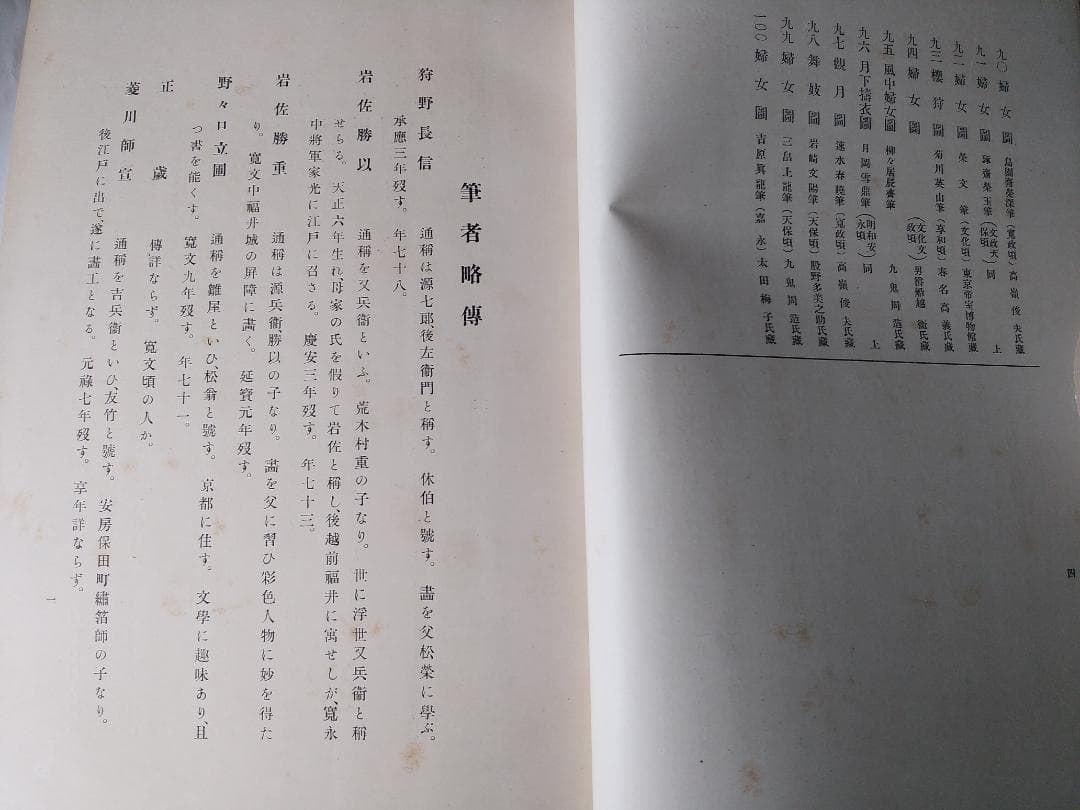 九〇 婦女圖 鳥園齋榮深筆(寬政頃) 高嶺俊夫氏藏
九一 婦女圖 琢齋榮玉筆(文政天保頃) 同上
九二 婦女圖 榮文筆(文化頃) 東京帝室博物館藏
九三 櫻狩圖 菊川英山筆(享和頃) 春名高義氏藏
九四 婦女圖 (文化文政頃) 男爵船越
九五 風中婦女圖 柳々居辰齋筆 九鬼周造氏藏
九六 月下擣衣圖 月岡雪鼎筆(明和安永頃) 同上
九七 觀月圖 速水春曉筆(寬政頃) 高嶺俊夫氏藏
九八 舞妓圖 岩崎文陽筆(天保頃) 殿野多美之助氏藏
九九 婦女圖 三畠上龍筆(天保頃) 九鬼周造氏藏
一〇〇 婦女圖 吉原眞龍筆(嘉永) 太田梅子氏藏
四
筆者略傳
狩野長信 通稱は源七郎、後左衞門と稱す。休伯と號す。畵を父松榮に學ぶ。
承應三年歿す。年七十八。
岩佐勝以 通稱を又兵衞といふ。荒木村重の子なり。世に浮世又兵衞と稱
せらる。天正六年生れ、母家の氏を假りて岩佐と稱し、後越前福井に寓せしが、寬永
中將軍家光に江戸に召さる。慶安三年歿す。年七十三。
岩佐勝重 通稱は源兵衞、勝以の子なり。畵を父に習ひ彩色人物に妙を得た
り。寬文中福井城の屏障に畵く。延寶元年歿す。
野々口立圃 通稱を雛屋といひ、松翁と號す。京都に住す。文學に趣味あり、且
つ書を能くす。寬文九年歿す。年七十一。
正歲 傳詳ならず。寬文頃の人か。
菱川師宣 通稱を吉兵衞といひ、友竹と號す。安房保田町繡箔師の子なり。
後江戸に出で、遂に畵工となる。元祿七年歿す。享年詳ならず。
一